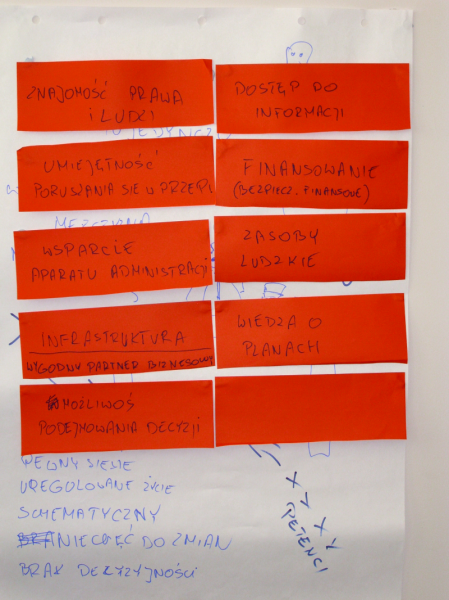 ZNAJOMOŚĆ PRAWA
I LUDZI
UMIEJĘTNOŚĆ
PORUSZANIA SIĘ W PRZEPI
WSPARCIE
APARATU ADMINISTRACJI
INFRASTRUKTURA
WYGODNY PARTNER BIZNESOWY
MOŻLIWOŚ
PODEJMOWANIA DECYZJI
DOSTĘP DO
INFORMACJI
FINANSOWANIE
(BEZPIECZ. FINANSOWE)
ZASOBY
LUDZKIE
WIEDZA O
PLANACH
PEWNY SIEBIE
UREGULOWANE ŻYCIE
SCHEMATYCZNY
NIECHĘĆ DO ZMIAN
BRAK DECYZYJNOŚCI
PETENCI